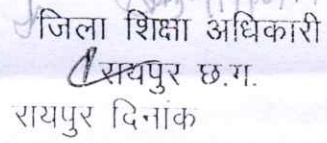 जिला शिक्षा अधिकारी
रायपुर छ.ग.
रायपुर दिनांक